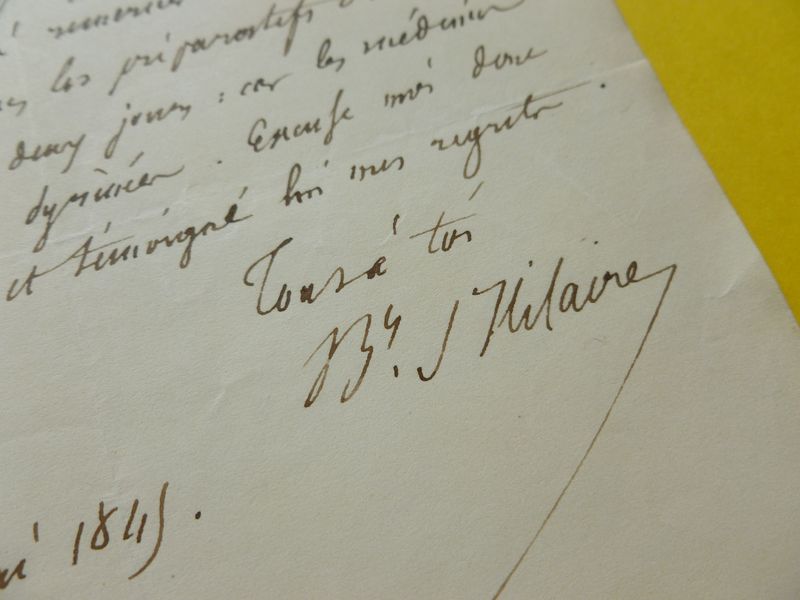 remercier
les préparatifs
deux jours : car les médecins
Excuse moi donc
et témoigne lui mes regrets.
Tout à toi
By. St Hilaire
1845.